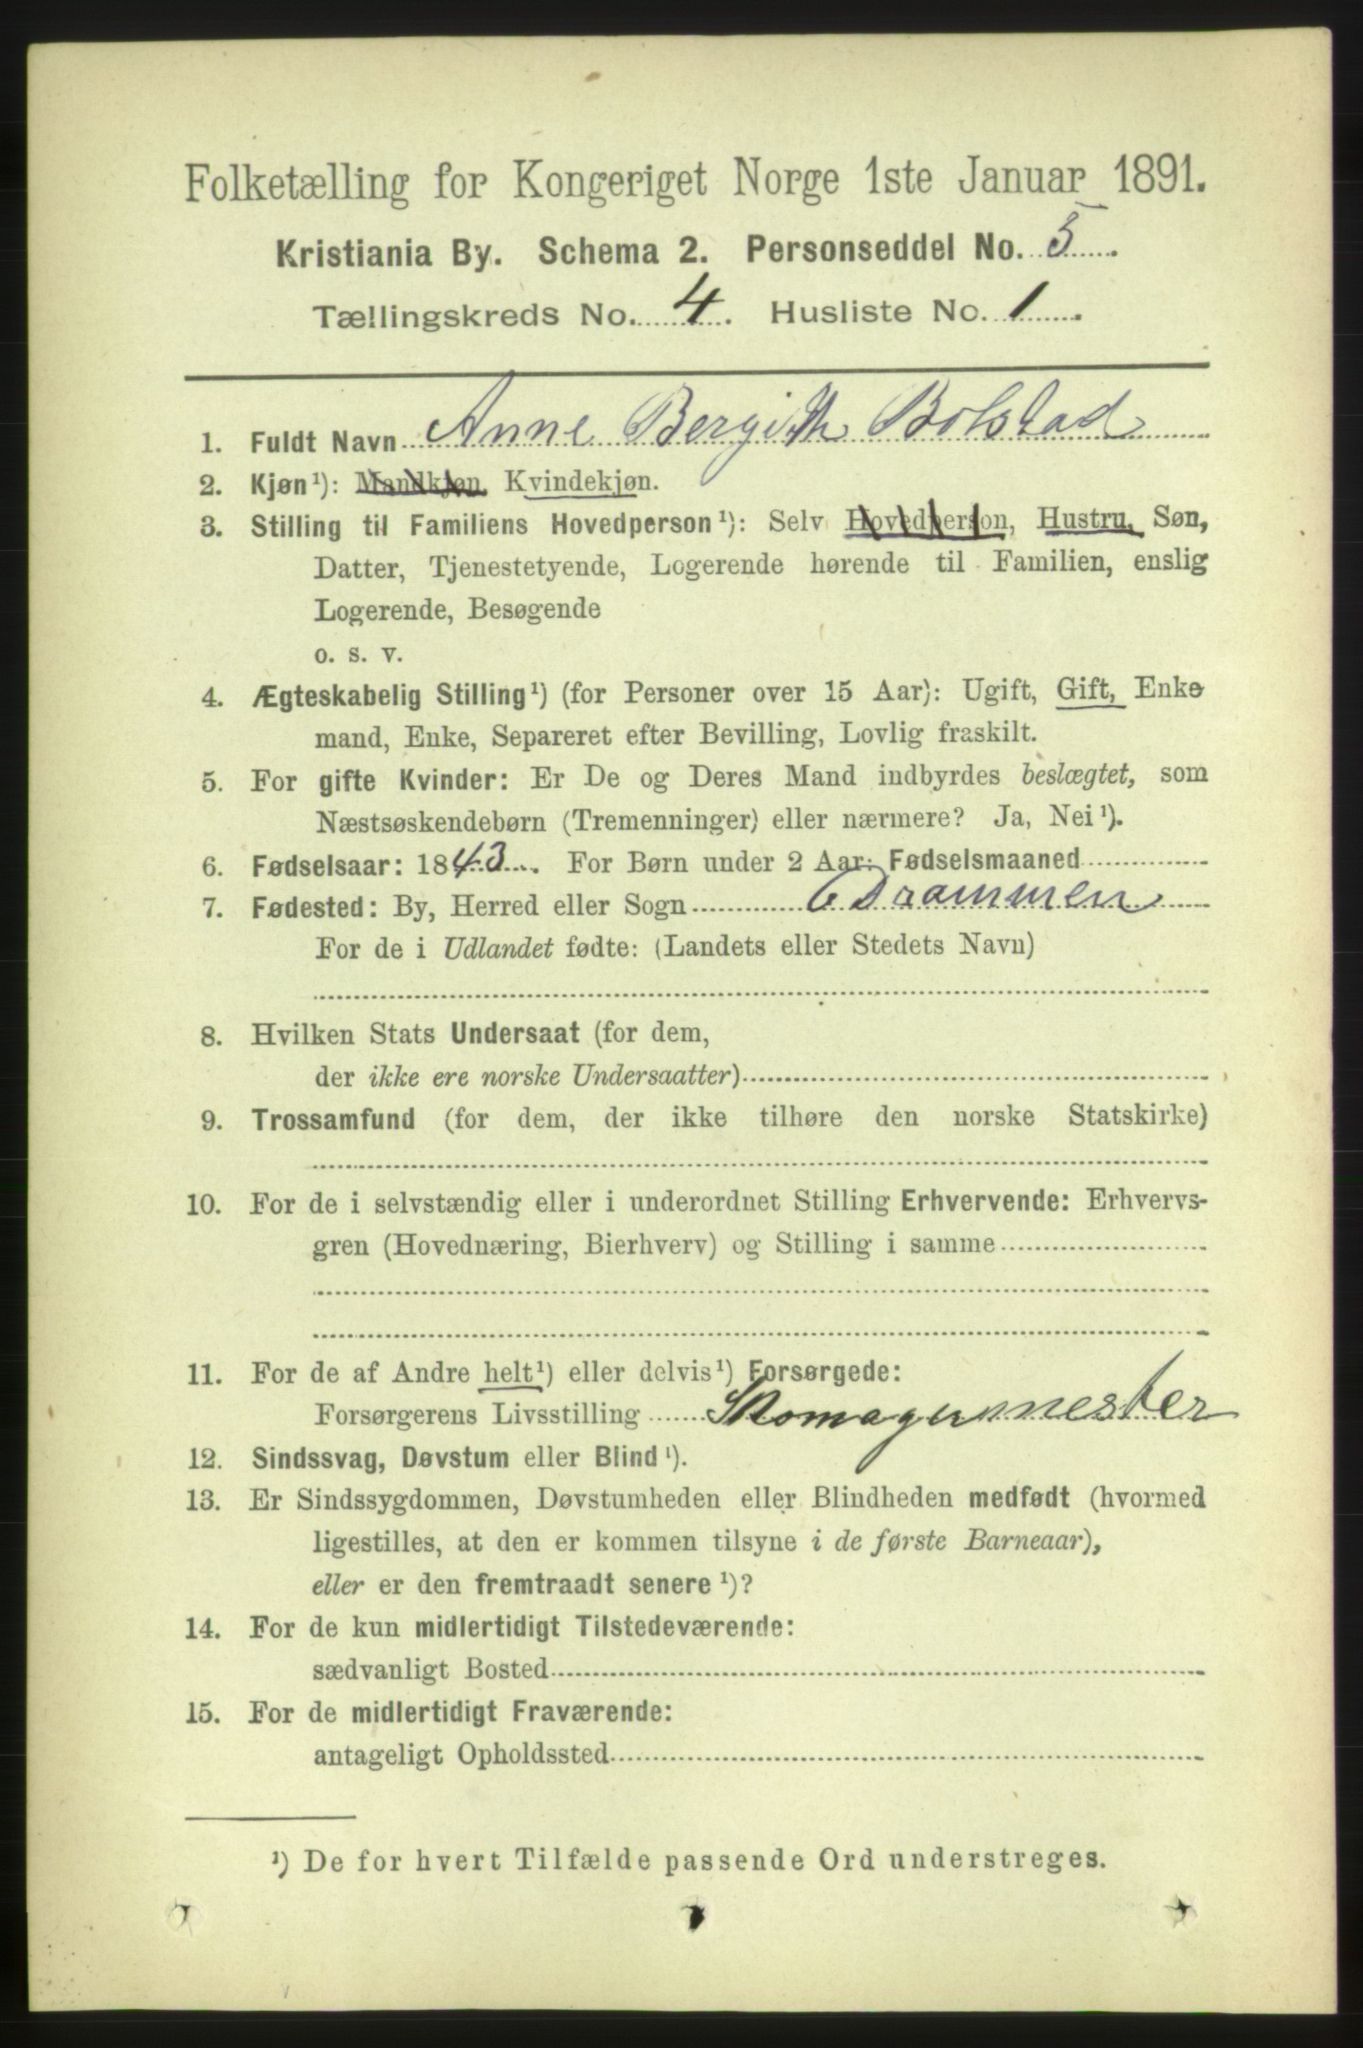 Folketælling for Kongeriget Norge 1ste Januar 1891.
Kristiania By. Schema 2. Personseddel No. 5.
Tællingskreds No. 4. Husliste No. 1.
1. Fuldt Navn Anne Bergith Bolstad
2. Kjøn¹): Mandkjøn, Kvindekjøn.
3. Stilling til Familiens Hovedperson¹): Selv Hovedperson, Hustru, Søn,
Datter, Tjenestetyende, Logerende hørende til Familien, enslig
Logerende, Besøgende
o. s. v.
4. Ægteskabelig Stilling¹) (for Personer over 15 Aar): Ugift, Gift, Enke-
mand, Enke, Separeret efter Bevilling, Lovlig fraskilt.
5. For gifte Kvinder: Er De og Deres Mand indbyrdes beslægtet, som
Næstsøskendebørn (Tremenninger) eller nærmere? Ja, Nei¹).
6. Fødselsaar: 1843. For Børn under 2 Aar: Fødselsmaaned
7. Fødested: By, Herred eller Sogn Drammen
For de i Udlandet fødte: (Landets eller Stedets Navn)
8. Hvilken Stats Undersaat (for dem,
der ikke ere norske Undersaatter)
9. Trossamfund (for dem, der ikke tilhøre den norske Statskirke)
10. For de i selvstændig eller i underordnet Stilling Erhvervende: Erhvervs-
gren (Hovednæring, Bierhverv) og Stilling i samme
11. For de af Andre helt¹) eller delvis¹) Forsørgede:
Forsørgerens Livsstilling Skomagermester
12. Sindssvag, Døvstum eller Blind¹).
13. Er Sindssygdommen, Døvstumheden eller Blindheden medfødt (hvormed
ligestilles, at den er kommen tilsyne i de første Barneaar),
eller er den fremtraadt senere¹)?
14. For de kun midlertidigt Tilstedeværende:
sædvanligt Bosted
15. For de midlertidigt Fraværende:
antageligt Opholdssted
¹) De for hvert Tilfælde passende Ord understreges.